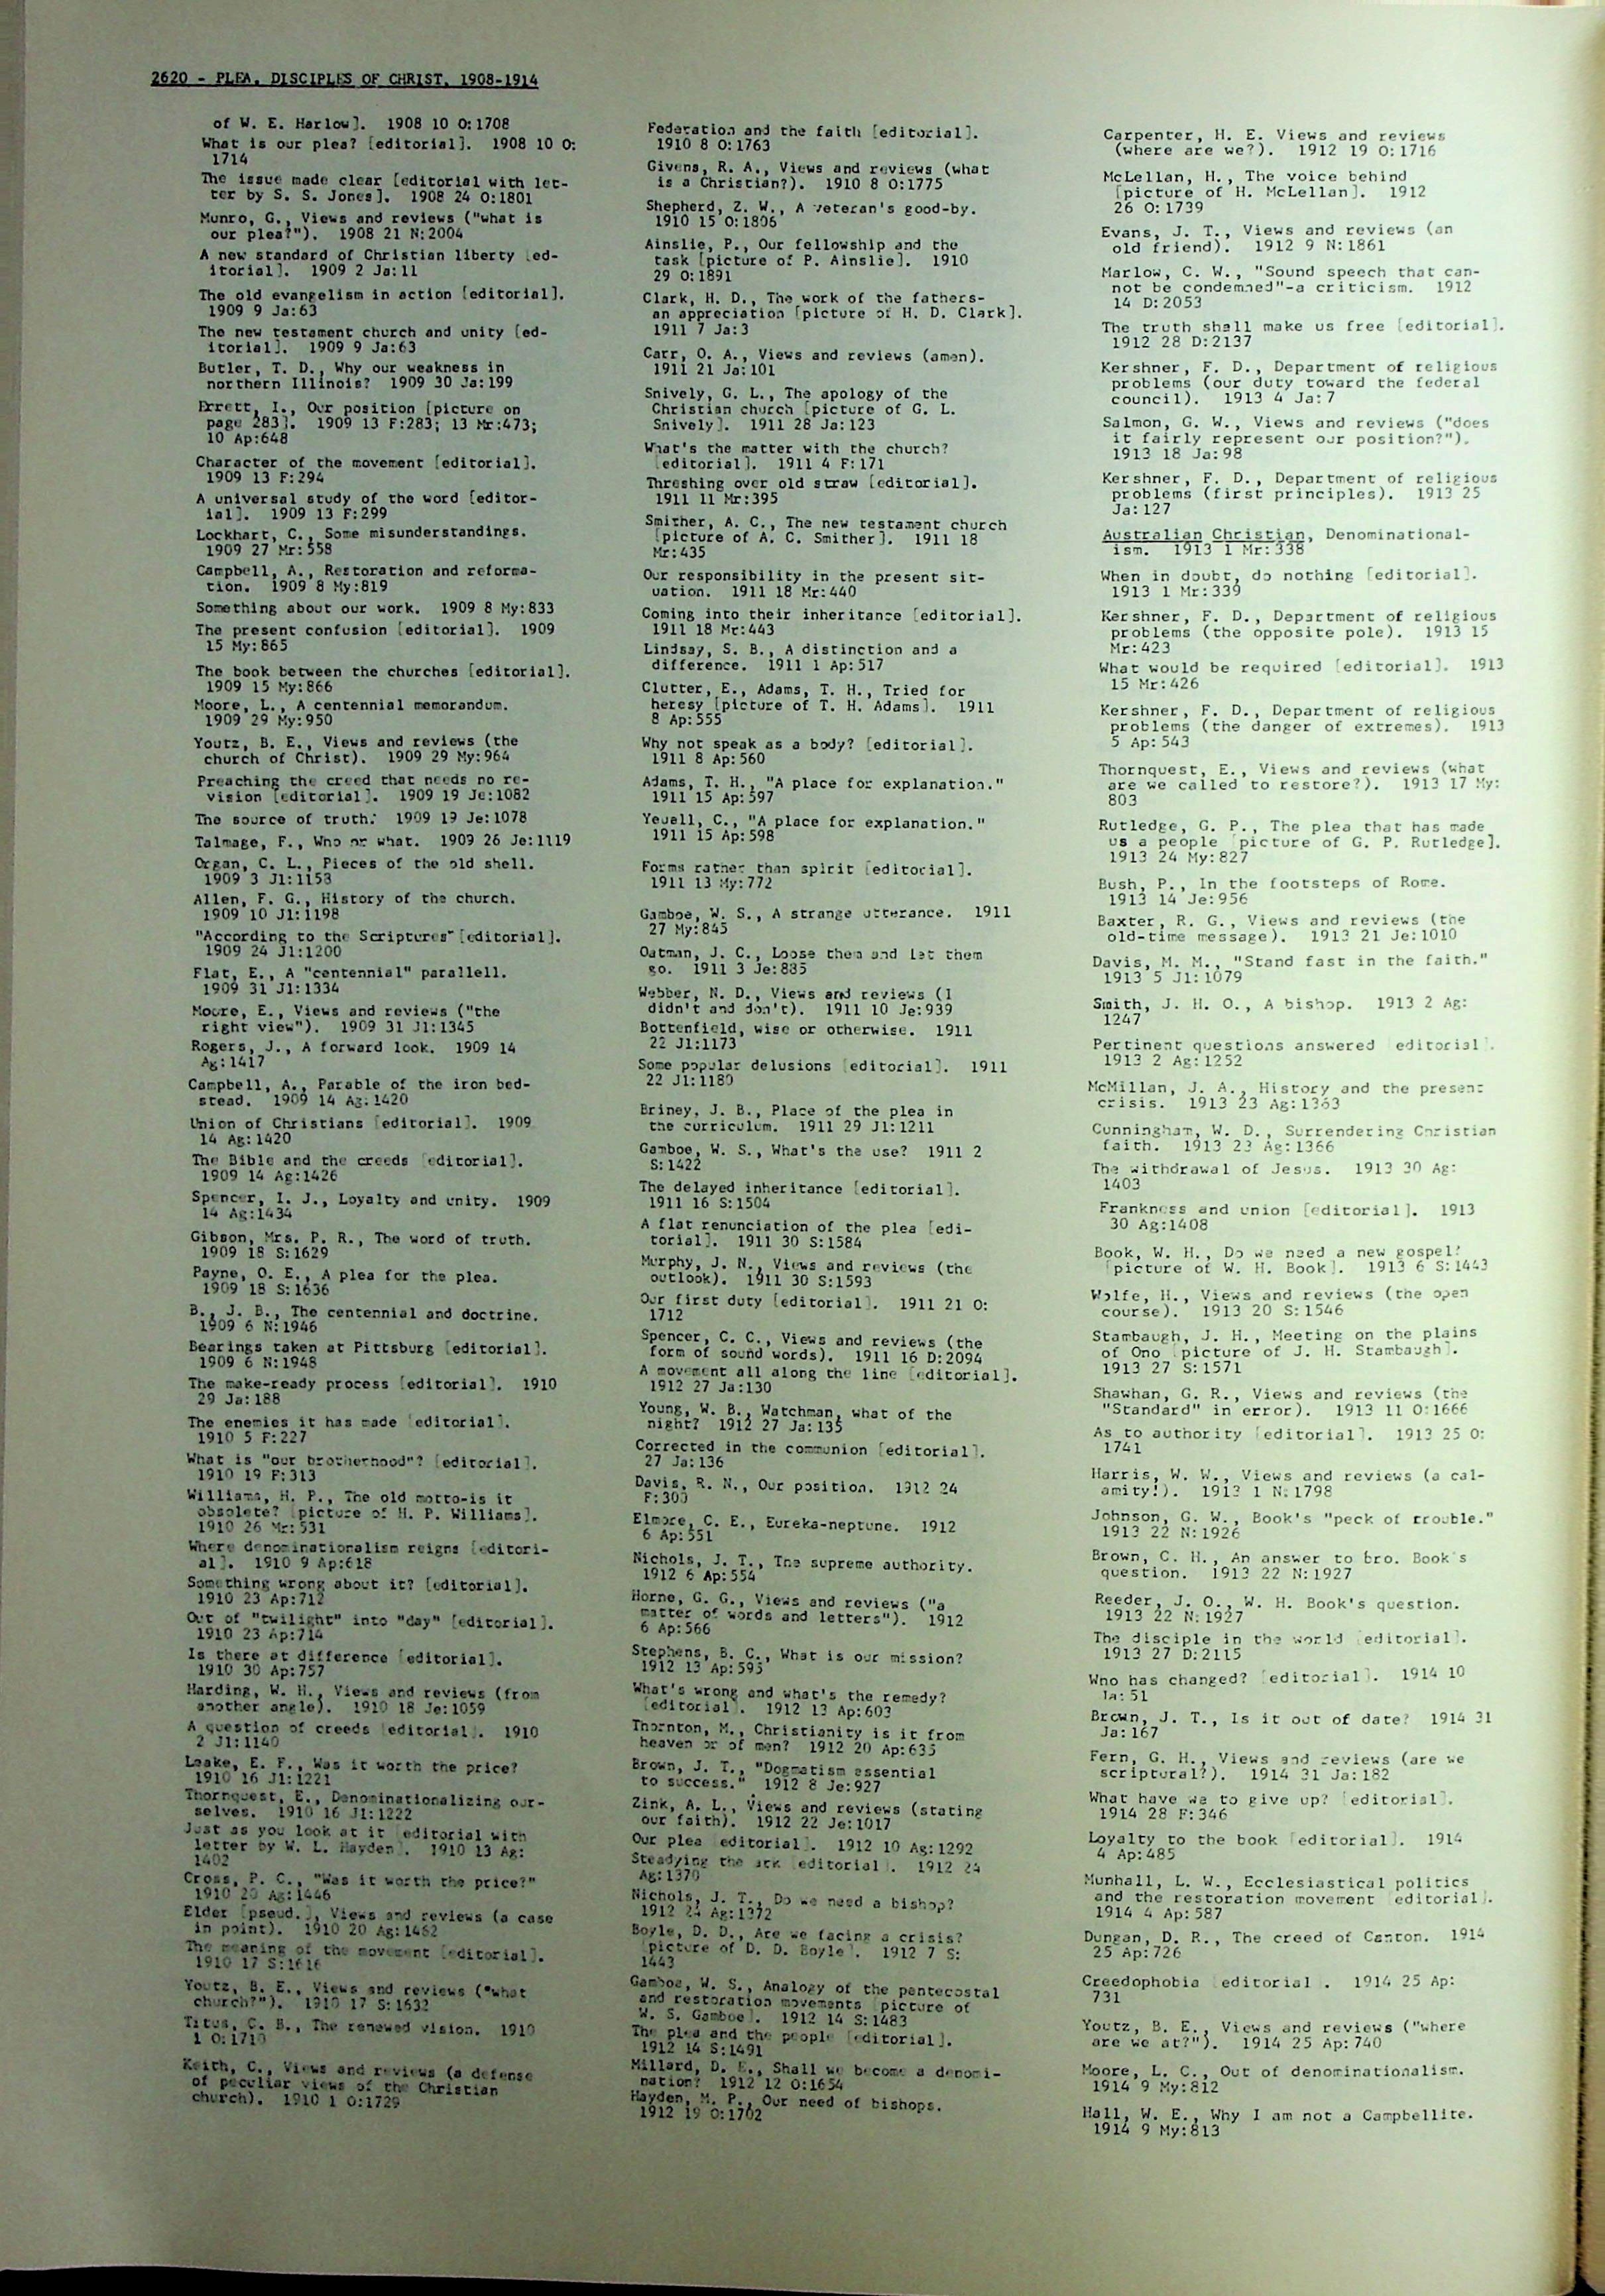 2620 - PLEA, DISCIPLES OF CHRIST, 1908-1914
of W. E. Harlow]. 1908 10 O:1708
What is our plea? [editorial]. 1908 10 O:
1714
The issue made clear [editorial with let-
ter by S. S. Jones]. 1908 24 O:1801
Munro, G., Views and reviews ("what is
our plea?"). 1908 21 N:2004
A new standard of Christian liberty [ed-
itorial]. 1909 2 Ja:11
The old evangelism in action [editorial].
1909 9 Ja:63
The new testament church and unity [ed-
itorial]. 1909 9 Ja:63
Butler, T. D., Why our weakness in
northern Illinois? 1909 30 Ja:199
Errett, I., Our position [picture on
page 283]. 1909 13 F:283; 13 Mr:473;
10 Ap:648
Character of the movement [editorial].
1909 13 F:294
A universal study of the word [editor-
ial]. 1909 13 F:299
Lockhart, C., Some misunderstandings.
1909 27 Mr:558
Campbell, A., Restoration and reforma-
tion. 1909 8 My:819
Something about our work. 1909 8 My:833
The present confusion [editorial]. 1909
15 My:865
The book between the churches [editorial].
1909 15 My:866
Moore, L., A centennial memorandum.
1909 29 My:950
Youtz, B. E., Views and reviews (the
church of Christ). 1909 29 My:964
Preaching the creed that needs no re-
vision [editorial]. 1909 19 Je:1082
The source of truth. 1909 19 Je:1078
Talmage, F., Who or what. 1909 26 Je:1119
Organ, C. L., Pieces of the old shell.
1909 3 Jl:1153
Allen, F. G., History of the church.
1909 10 Jl:1198
"According to the Scriptures" [editorial].
1909 24 Jl:1200
Flat, E., A "centennial" parallell.
1909 31 Jl:1334
Moore, E., Views and reviews ("the
right view"). 1909 31 Jl:1345
Rogers, J., A forward look. 1909 14
Ag:1417
Campbell, A., Parable of the iron bed-
stead. 1909 14 Ag:1420
Union of Christians [editorial]. 1909
14 Ag:1420
The Bible and the creeds [editorial].
1909 14 Ag:1426
Spencer, I. J., Loyalty and unity. 1909
14 Ag:1434
Gibson, Mrs. P. R., The word of truth.
1909 18 S:1629
Payne, O. E., A plea for the plea.
1909 18 S:1636
B., J. B., The centennial and doctrine.
1909 6 N:1946
Bearings taken at Pittsburg [editorial].
1909 6 N:1948
The make-ready process [editorial]. 1910
29 Ja:188
The enemies it has made [editorial].
1910 5 F:227
What is "our brotherhood"? [editorial].
1910 19 F:313
Williams, H. P., The old motto-is it
obsolete? [picture of H. P. Williams].
1910 26 Mr:531
Where denominationalism reigns [editori-
al]. 1910 9 Ap:618
Something wrong about it? [editorial].
1910 23 Ap:712
Out of "twilight" into "day" [editorial].
1910 23 Ap:714
Is there at difference [editorial].
1910 30 Ap:757
Harding, W. H., Views and reviews (from
another angle). 1910 18 Je:1059
A question of creeds [editorial]. 1910
2 Jl:1140
Leake, E. F., Was it worth the price?
1910 16 Jl:1221
Thornquest, E., Denominationalizing our-
selves. 1910 16 Jl:1222
Just as you look at it [editorial with
letter by W. L. Hayden]. 1910 13 Ag:
1402
Cross, P. C., "Was it worth the price?"
1910 20 Ag:1446
Elder [pseud.], Views and reviews (a case
in point). 1910 20 Ag:1462
The meaning of the movement [editorial].
1910 17 S:1616
Youtz, B. E., Views and reviews ("what
church?"). 1910 17 S:1632
Titus, C. B., The renewed vision. 1910
1 O:1710
Keith, C., Views and reviews (a defense
of peculiar views of the Christian
church). 1910 1 O:1729
Federation and the faith [editorial].
1910 8 O:1763
Givens, R. A., Views and reviews (what
is a Christian?). 1910 8 O:1775
Shepherd, Z. W., A veteran's good-by.
1910 15 O:1806
Ainslie, P., Our fellowship and the
task [picture of P. Ainslie]. 1910
29 O:1891
Clark, H. D., The work of the fathers-
an appreciation [picture of H. D. Clark].
1911 7 Ja:3
Carr, O. A., Views and reviews (amen).
1911 21 Ja:101
Snively, G. L., The apology of the
Christian church [picture of G. L.
Snively]. 1911 28 Ja:123
What's the matter with the church?
[editorial]. 1911 4 F:171
Threshing over old straw [editorial].
1911 11 Mr:395
Smither, A. C., The new testament church
[picture of A. C. Smither]. 1911 18
Mr:435
Our responsibility in the present sit-
uation. 1911 18 Mr:440
Coming into their inheritance [editorial].
1911 18 Mr:443
Lindsay, S. B., A distinction and a
difference. 1911 1 Ap:517
Clutter, E., Adams, T. H., Tried for
heresy [picture of T. H. Adams]. 1911
8 Ap:555
Why not speak as a body? [editorial].
1911 8 Ap:560
Adams, T. H., "A place for explanation."
1911 15 Ap:597
Yeuell, C., "A place for explanation."
1911 15 Ap:598
Forms rather than spirit [editorial].
1911 13 My:772
Gamboe, W. S., A strange utterance. 1911
27 My:845
Oatman, J. C., Loose them and let them
go. 1911 3 Je:885
Webber, N. D., Views and reviews (I
didn't and don't). 1911 10 Je:939
Bottenfield, wise or otherwise. 1911
22 Jl:1173
Some popular delusions [editorial]. 1911
22 Jl:1180
Briney, J. B., Place of the plea in
the curriculum. 1911 29 Jl:1211
Gamboe, W. S., What's the use? 1911 2
S:1422
The delayed inheritance [editorial].
1911 16 S:1504
A flat renunciation of the plea [edi-
torial]. 1911 30 S:1584
Murphy, J. N., Views and reviews (the
outlook). 1911 30 S:1593
Our first duty [editorial]. 1911 21 O:
1712
Spencer, C. C., Views and reviews (the
form of sound words). 1911 16 D:2094
A movement all along the line [editorial].
1912 27 Ja:130
Young, W. B., Watchman, what of the
night? 1912 27 Ja:135
Corrected in the communion [editorial].
27 Ja:136
Davis, R. N., Our position. 1912 24
F:300
Elmore, C. E., Eureka-neptune. 1912
6 Ap:551
Nichols, J. T., The supreme authority.
1912 6 Ap:554
Horne, G. G., Views and reviews ("a
matter of words and letters"). 1912
6 Ap:566
Stephens, B. C., What is our mission?
1912 13 Ap:595
What's wrong and what's the remedy?
[editorial]. 1912 13 Ap:603
Thornton, M., Christianity is it from
heaven or of men? 1912 20 Ap:635
Brown, J. T., "Dogmatism essential
to success." 1912 8 Je:927
Zink, A. L., Views and reviews (stating
our faith). 1912 22 Je:1017
Our plea [editorial]. 1912 10 Ag:1292
Steadying the ark [editorial]. 1912 24
Ag:1370
Nichols, J. T., Do we need a bishop?
1912 24 Ag:1372
Boyle, D. D., Are we facing a crisis?
[picture of D. D. Boyle]. 1912 7 S:
1443
Gamboe, W. S., Analogy of the pentecostal
and restoration movements [picture of
W. S. Gamboe]. 1912 14 S:1483
The plea and the people [editorial].
1912 14 S:1491
Millard, D. E., Shall we become a denomi-
nation? 1912 12 O:1654
Hayden, M. P., Our need of bishops.
1912 19 O:1702
Carpenter, H. E. Views and reviews
(where are we?). 1912 19 O:1716
McLellan, H., The voice behind
[picture of H. McLellan]. 1912
26 O:1739
Evans, J. T., Views and reviews (an
old friend). 1912 9 N:1861
Marlow, C. W., "Sound speech that can-
not be condemned"-a criticism. 1912
14 D:2053
The truth shall make us free [editorial].
1912 28 D:2137
Kershner, F. D., Department of religious
problems (our duty toward the federal
council). 1913 4 Ja:7
Salmon, G. W., Views and reviews ("does
it fairly represent our position?").
1913 18 Ja:98
Kershner, F. D., Department of religious
problems (first principles). 1913 25
Ja:127
Australian Christian, Denominational-
ism. 1913 1 Mr:338
When in doubt, do nothing [editorial].
1913 1 Mr:339
Kershner, F. D., Department of religious
problems (the opposite pole). 1913 15
Mr:423
What would be required [editorial]. 1913
15 Mr:426
Kershner, F. D., Department of religious
problems (the danger of extremes). 1913
5 Ap:543
Thornquest, E., Views and reviews (what
are we called to restore?). 1913 17 My:
803
Rutledge, G. P., The plea that has made
us a people [picture of G. P. Rutledge].
1913 24 My:827
Bush, P., In the footsteps of Rome.
1913 14 Je:956
Baxter, R. G., Views and reviews (the
old-time message). 1913 21 Je:1010
Davis, M. M., "Stand fast in the faith."
1913 5 Jl:1079
Smith, J. H. O., A bishop. 1913 2 Ag:
1247
Pertinent questions answered [editorial].
1913 2 Ag:1252
McMillan, J. A., History and the present
crisis. 1913 23 Ag:1363
Cunningham, W. D., Surrendering Christian
faith. 1913 23 Ag:1366
The withdrawal of Jesus. 1913 30 Ag:
1403
Frankness and union [editorial]. 1913
30 Ag:1408
Book, W. H., Do we need a new gospel?
[picture of W. H. Book]. 1913 6 S:1443
Wolfe, H., Views and reviews (the open
course). 1913 20 S:1546
Stambaugh, J. H., Meeting on the plains
of Ono [picture of J. H. Stambaugh].
1913 27 S:1571
Shawhan, G. R., Views and reviews (the
"Standard" in error). 1913 11 O:1666
As to authority [editorial]. 1913 25 O:
1741
Harris, W. W., Views and reviews (a cal-
amity!). 1913 1 N:1798
Johnson, G. W., Book's "peck of trouble."
1913 22 N:1926
Brown, C. H., An answer to bro. Book's
question. 1913 22 N:1927
Reeder, J. O., W. H. Book's question.
1913 22 N:1927
The disciple in the world [editorial].
1913 27 D:2115
Who has changed? [editorial]. 1914 10
Ja:51
Brown, J. T., Is it out of date? 1914 31
Ja:167
Fern, G. H., Views and reviews (are we
scriptural?). 1914 31 Ja:182
What have we to give up? [editorial].
1914 28 F:346
Loyalty to the book [editorial]. 1914
4 Ap:485
Munhall, L. W., Ecclesiastical politics
and the restoration movement [editorial].
1914 4 Ap:587
Dungan, D. R., The creed of Canton. 1914
25 Ap:726
Creedophobia [editorial]. 1914 25 Ap:
731
Youtz, B. E., Views and reviews ("where
are we at?"). 1914 25 Ap:740
Moore, L. C., Out of denominationalism.
1914 9 My:812
Hall, W. E., Why I am not a Campbellite.
1914 9 My:813